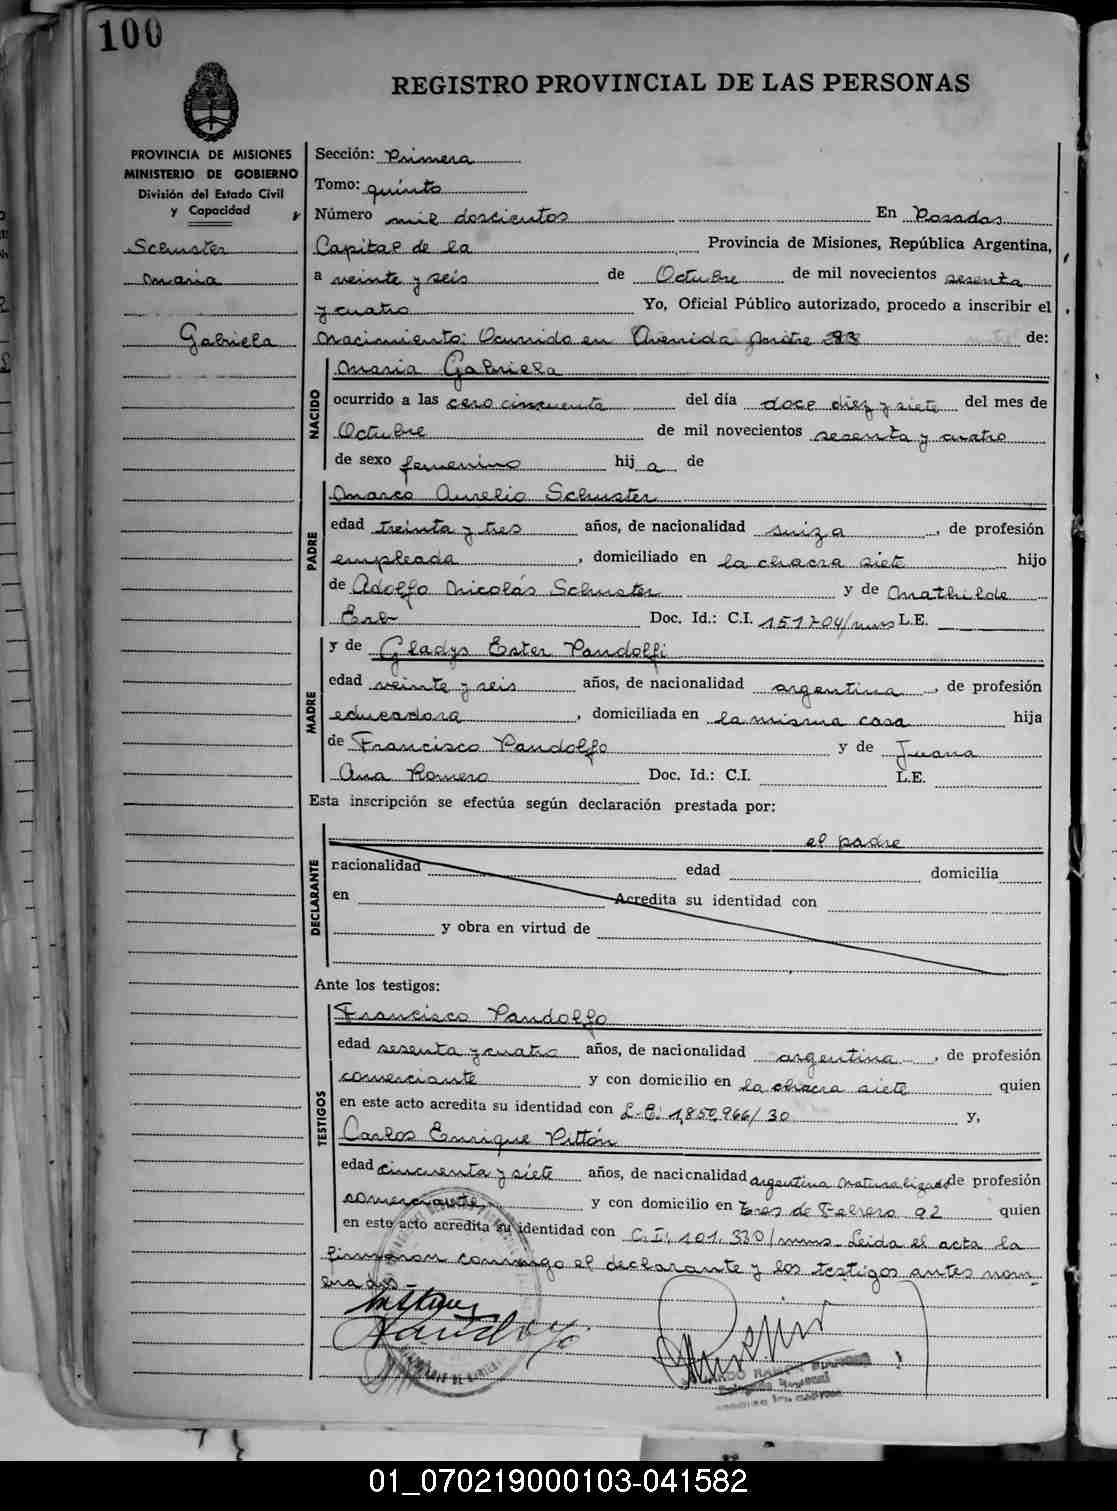 100
REGISTRO PROVINCIAL DE LAS PERSONAS
PROVINCIA DE MISIONES
MINISTERIO DE GOBIERNO
División del Estado Civil
y Capacidad
Schuster
Maria
Gabriela
Sección: Primera
Tomo: quinto
Número mil doscientos En Posadas
Capital de la Provincia de Misiones, República Argentina,
a veinte y seis de Octubre de mil novecientos sesenta
y cuatro Yo, Oficial Público autorizado, procedo a inscribir el
Nacimiento: Ocurrido en Avenida Mitre de:
NACIDO
Maria Gabriela
ocurrido a las cero cincuenta del día doce diez y siete del mes de
Octubre de mil novecientos sesenta y cuatro
de sexo femenino hij a de
PADRE
Marco Aurelio Schuster
edad treinta y tres años, de nacionalidad suiza, de profesión
empleado, domiciliado en la chacra siete hijo
de Adolfo Nicolás Schuster y de Mathilde
Erb Doc. Id.: C.I. 151204/mns L.E.
MADRE
y de Gladys Ester Pandolfi
edad veinte y seis años, de nacionalidad argentina, de profesión
educadora, domiciliada en la misma casa hija
de Francisco Pandolfo y de Juana
Ana Romero Doc. Id.: C.I. L.E.
Esta inscripción se efectúa según declaración prestada por:
DECLARANTE
el padre
nacionalidad edad domicilia
en Acredita su identidad con
y obra en virtud de
Ante los testigos:
TESTIGOS
Francisco Pandolfo
edad sesenta y cuatro años, de nacionalidad argentina, de profesión
comerciante y con domicilio en la chacra siete quien
en este acto acredita su identidad con L.E: 1,850,966/30 y,
Carlos Enrique Pittón
edad cincuenta y siete años, de nacionalidad argentina naturalizado de profesión
comerciante y con domicilio en tres de Febrero 92 quien
en este acto acredita su identidad con C.I: 101.330/mns. Leida el acta la
firmaron conmigo el declarante y los testigos antes nom-
brados-
01_070219000103-041582